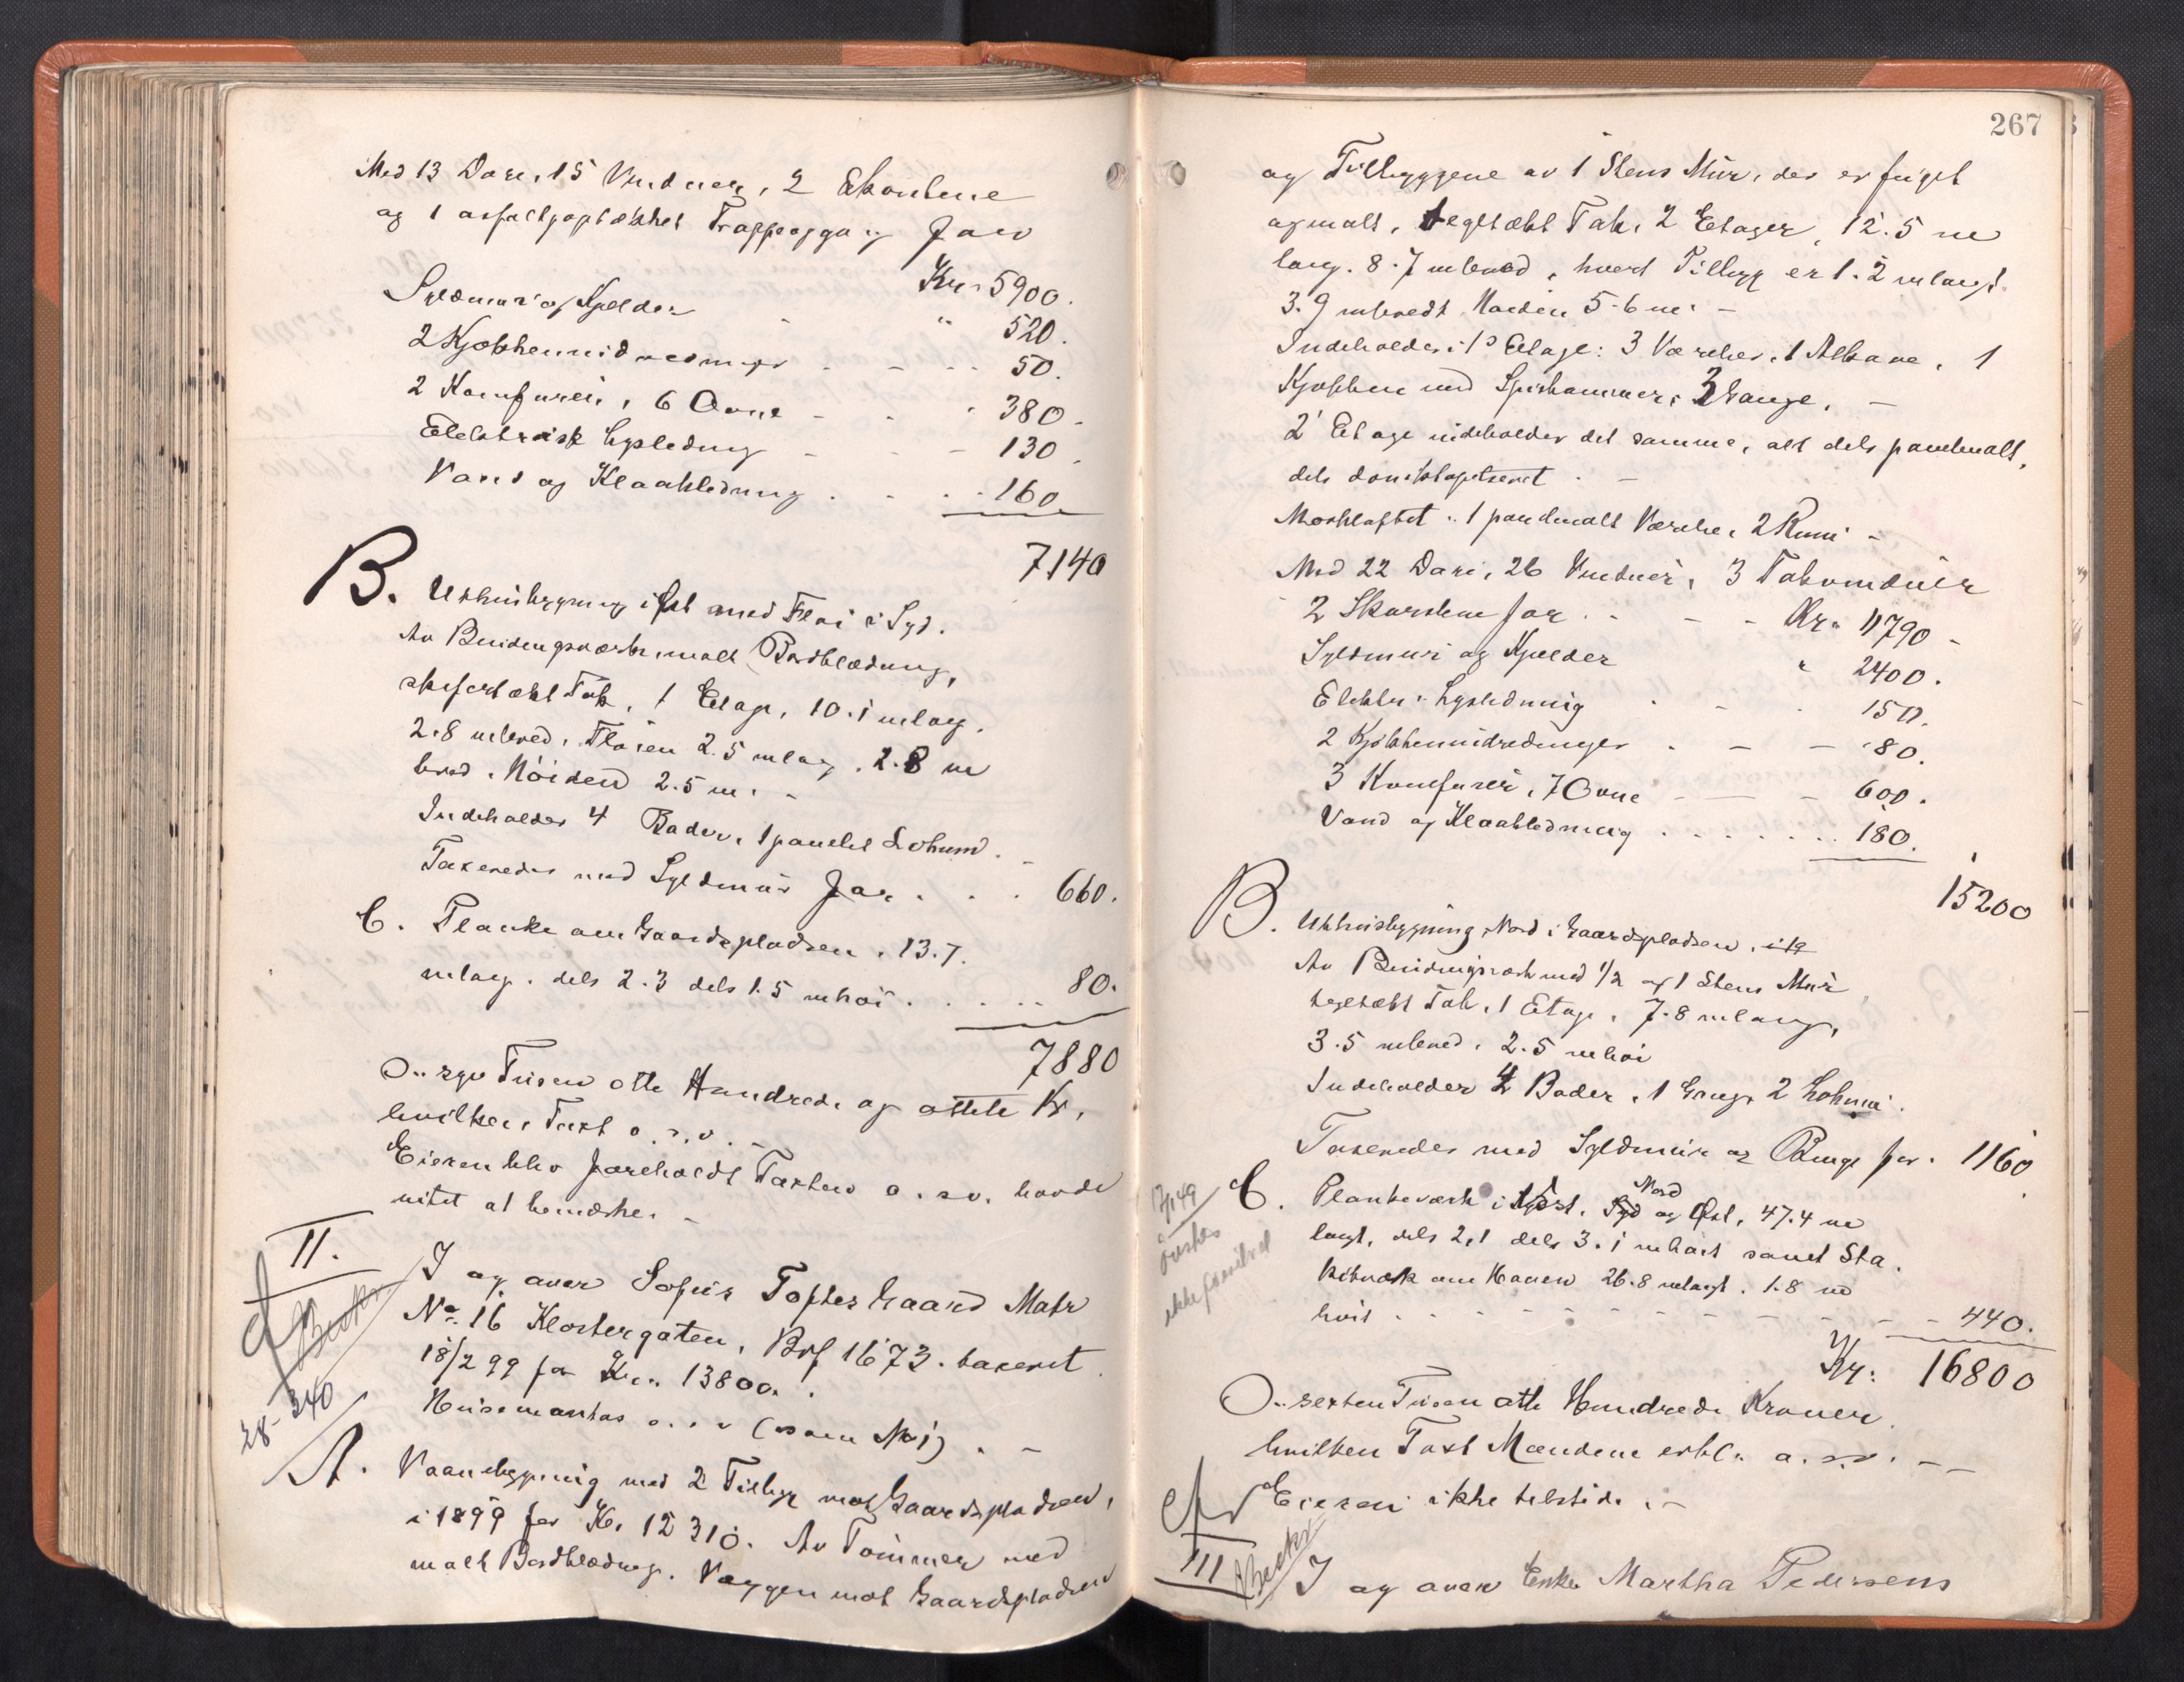 Med 13 Døre, 15 Vinduer, 2 Skorstene
og 1 asfaltpaptækket Trappeopgang for
Kr. 5900.
Syldmur og Kjelder " 520.
2 Kjøkkenindredninger 50.
2 Komfurer, 6 Ovne 380.
Elektrisk Lysledning 130.
Vand og Kloakledning 160.
7140
B. Uthusbygning i Øst med Fløi i Syd.
Av Bindingsværk malt Bordklædning,
skifertækt Tak, 1 Etage, 10.1 m lang,
2.8 m bred. Fløien 2.5 m lang, 2.8 m
bred. Høiden 2.5 m. -
Indeholder 4 Boder, 1 panelet Lokum. -
Taxeredes med Syldmur for 660.
C. Planke om Gaardspladsen, 13.7.
m lang, dels 2.3 dels 1.5 m høi 80.
7880
Syv Tusen otte Hundrede og ottete Kr,
hvilken Taxt o.s.v. -
Eieren blev foreholdt Taxten o.s.v. havde
intet at bemerke. -
II. I og over Sofus Toftes Gaard Matr
No. 16 Klostergaten, Brf 1673. taxeret
18/2 99 for Kr. 13800.
28-340
Husemarkas o.s.v (som No 1). -
A. Vaaningsbygning med 2 Tilbyg mot Gaardspladsen,
i 1899 for Kr. 12310. Av Tømmer med
malt Bordklædning. Væggen mot Gaardspladsen
267
og Tilbyggene av 1 Stens Mur, der er fuget
og malt, tegltækt Tak, 2 Etager, 12.5 m
lang. 8.7 m bred, hvert Tilbygg er 1.2 m langt.
3.9 m bredt. Høiden 5.6 m. -
Indeholder i 1ste Etage: 3 Værelser, 1 Alkove, 1
Kjøkken med Spiskammer, 3 Gange. -
2' Etage indeholder det samme, alt dels panelmalt,
dels donkstapetseret. -
Mørkloftet: 1 panelmalt Værelse, 2 Rum -
Med 22 Døre, 26 Vinduer, 3 Takvinduer
2 Skorstene for Kr. 11790 -
Syldmur og Kjælder " 2400.
Elektr. Lysledning 150.
2 Kjøkkenindredninger 80.
3 Komfurer, 7 Ovne 600.
Vand og Kloakledning 180.
15200
B. Uthusbygning Nord i Gaardspladsen,
Av Bindingsverk med 1/2 og 1 Stens Mur
tegltækt Tak, 1 Etage, 7.8 m lang,
3.5 m bred, 2.5 m høi
Indeholder 4 Boder, 1 Gang, 2 Lokum.
Taxeredes med Syldmur og Binge for. 1160
C. Plankeværk i Vest, Nord og Øst, 47.4 m
langt, dels 2,1 dels 3.1 m høit samt Sta-
kitværk om Haven 26.8 m langt, 1.8 m
høit 440.
Kr: 16800
Sexten Tusen otte Hundrede Kroner
hvilken Taxt Mændene erkl. o.s.v. -
Eieren ikke tilstede. -
III I og over Enke Martha Pedersens